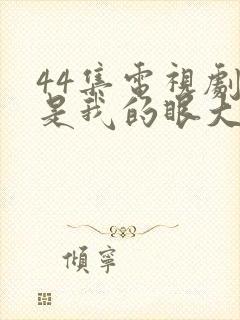 44集電視劇
是我的眼大
傾寧